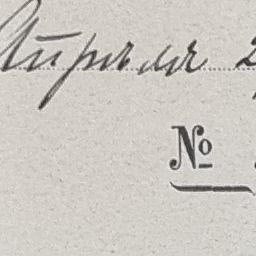 Апреля 2
№